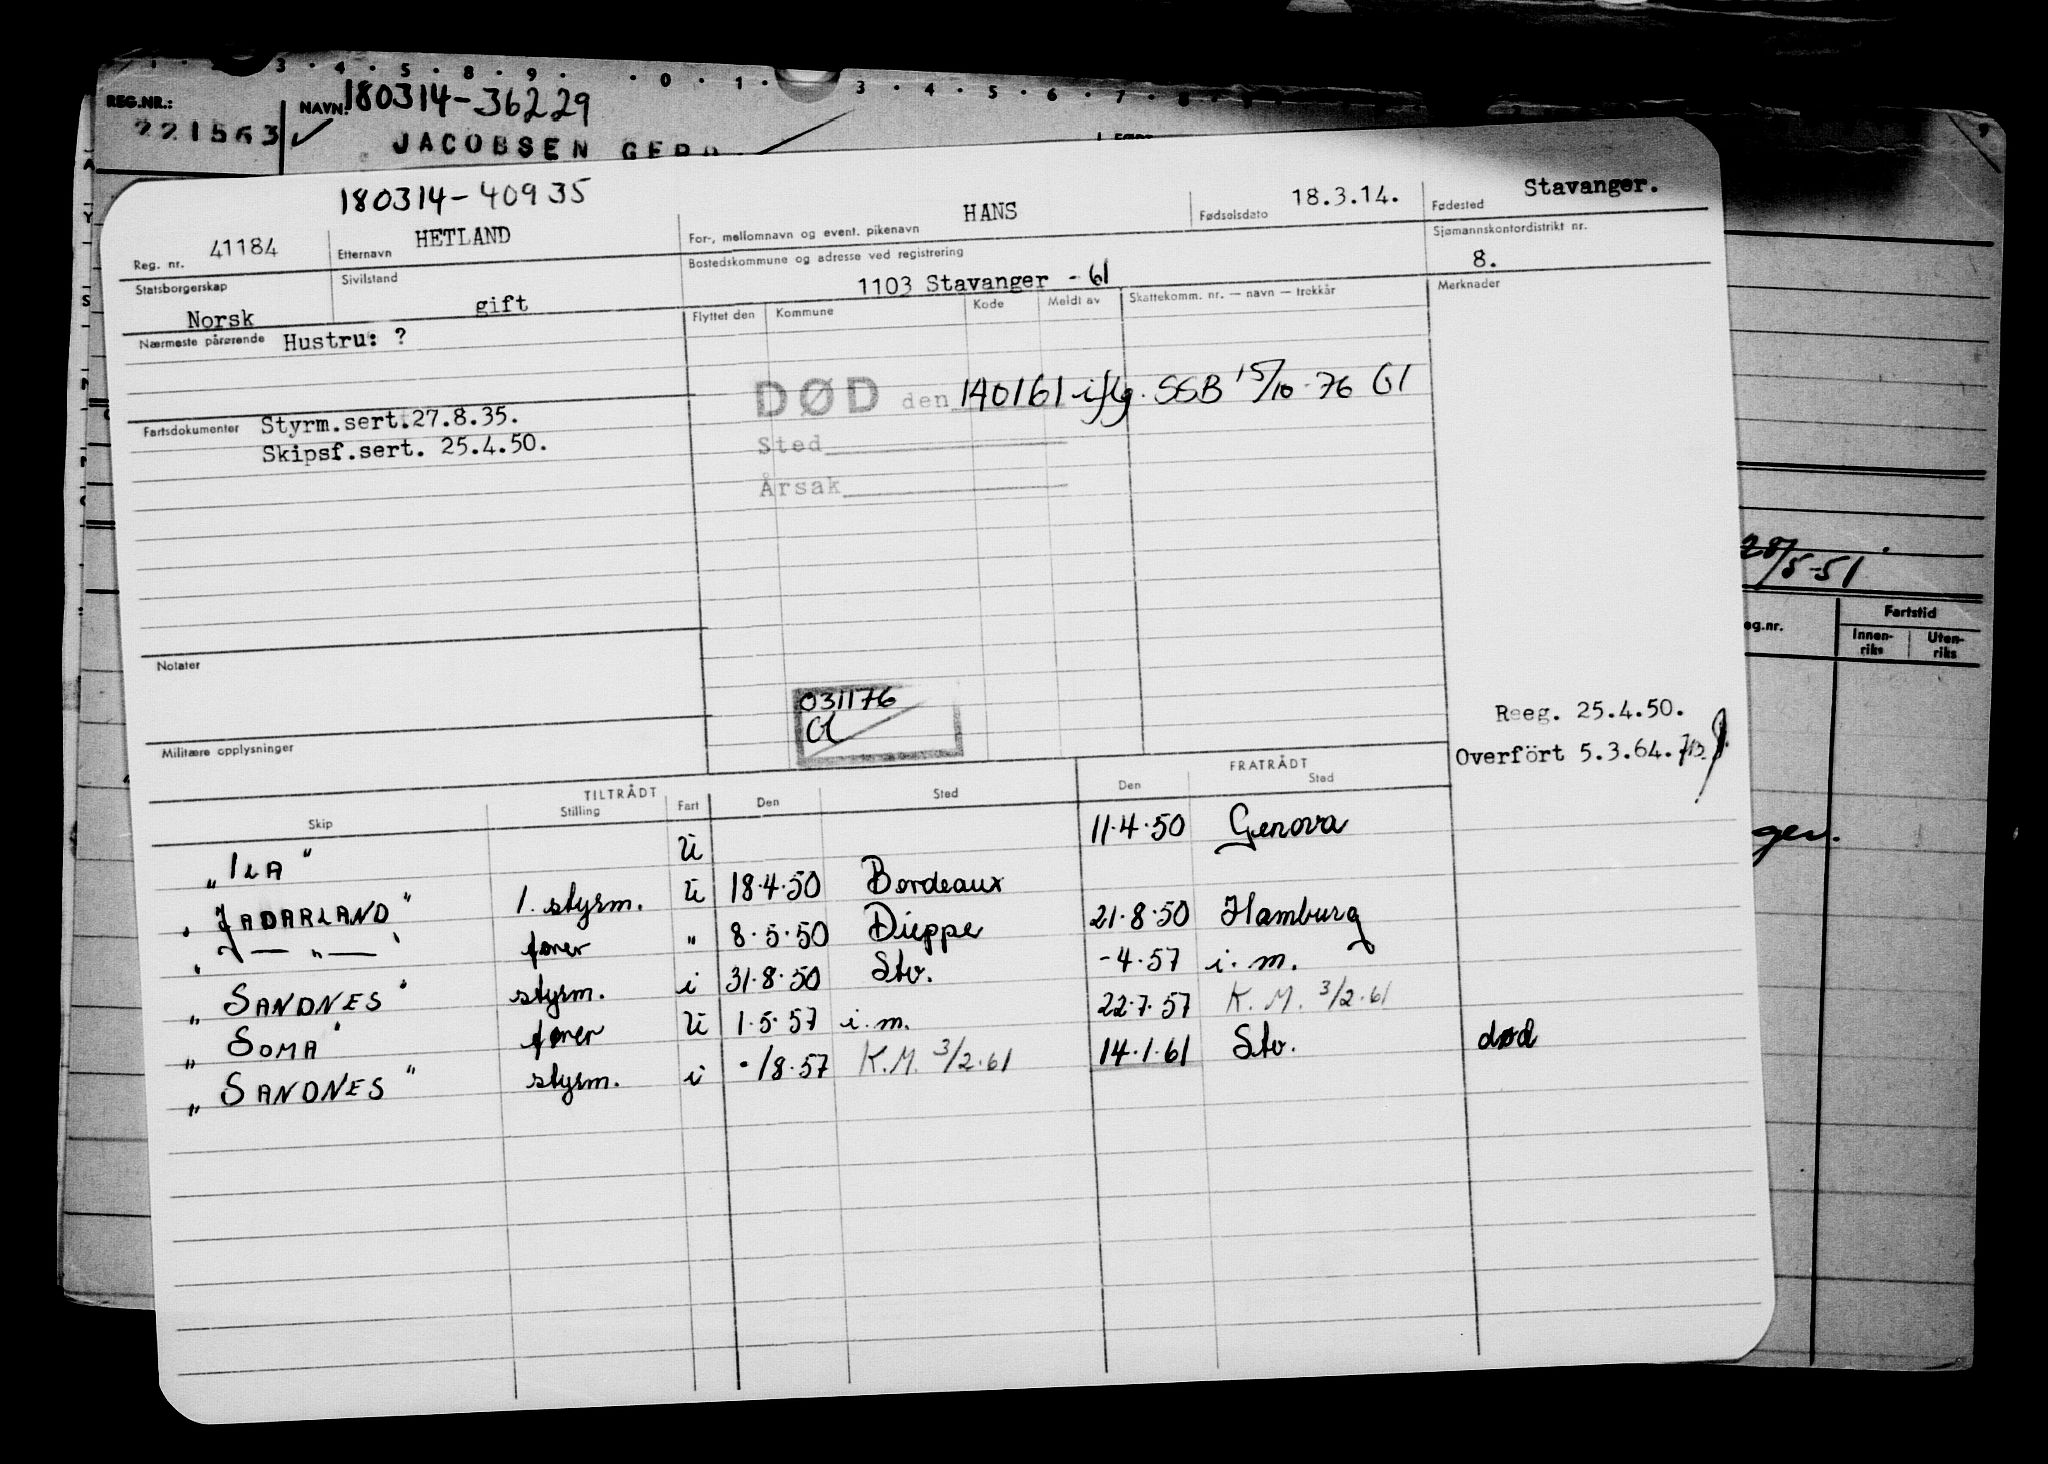 3 . 4 . 5 . 8 . 9 . . 0 . 1 . 3 . 4 . 5 . 6 . 7 . 8
REG.NR.: NAVN: 180314-36229
221563 JACOBSEN GERD
180314-40935
Reg. nr. 41184 Etternavn HETLAND For-, mellomnavn og event. pikenavn HANS Fødselsdato 18.3.14. Fødested Stavanger.
Statsborgerskap Norsk Sivilstand gift Bostedskommune og adresse ved registrering 1103 Stavanger - 61 Sjømannskontordistrikt nr. 8.
Nærmeste pårørende Hustru: ? Flyttet den Kommune Kode Meldt av Skattekomm. nr. — navn — trekkår Merknader
DØD den 140161 iflg. SSB 15/10-76 Gl
Sted
Årsak
Fartsdokumenter Styrm.sert.27.8.35.
Skipsf.sert. 25.4.50.
28/5-51
eg.nr. Fartstid
Innen-riks Uten-riks
Notater
031176
Gl
Militære opplysninger
Reeg. 25.4.50.
Overført 5.3.64.
TILTRÅDT FRATRÅDT
Skip Stilling Fart Den Sted Den Sted
„ILA" U 11.4.50 Genova
„JADARLAND" 1. styrm. U 18.4.50 Bordeaux
„ — " — " fører " 8.5.50 Dieppe 21.8.50 Hamburg
„SANDNES" styrm. i 31.8.50 Stv. -4.57 i.m.
„SOMA" fører U 1.5.57 i.m. 22.7.57 K.M. 3/2.61
„SANDNES" styrm. i -/8.57 K.M. 3/2.61 14.1.61 Stv. død
ger.